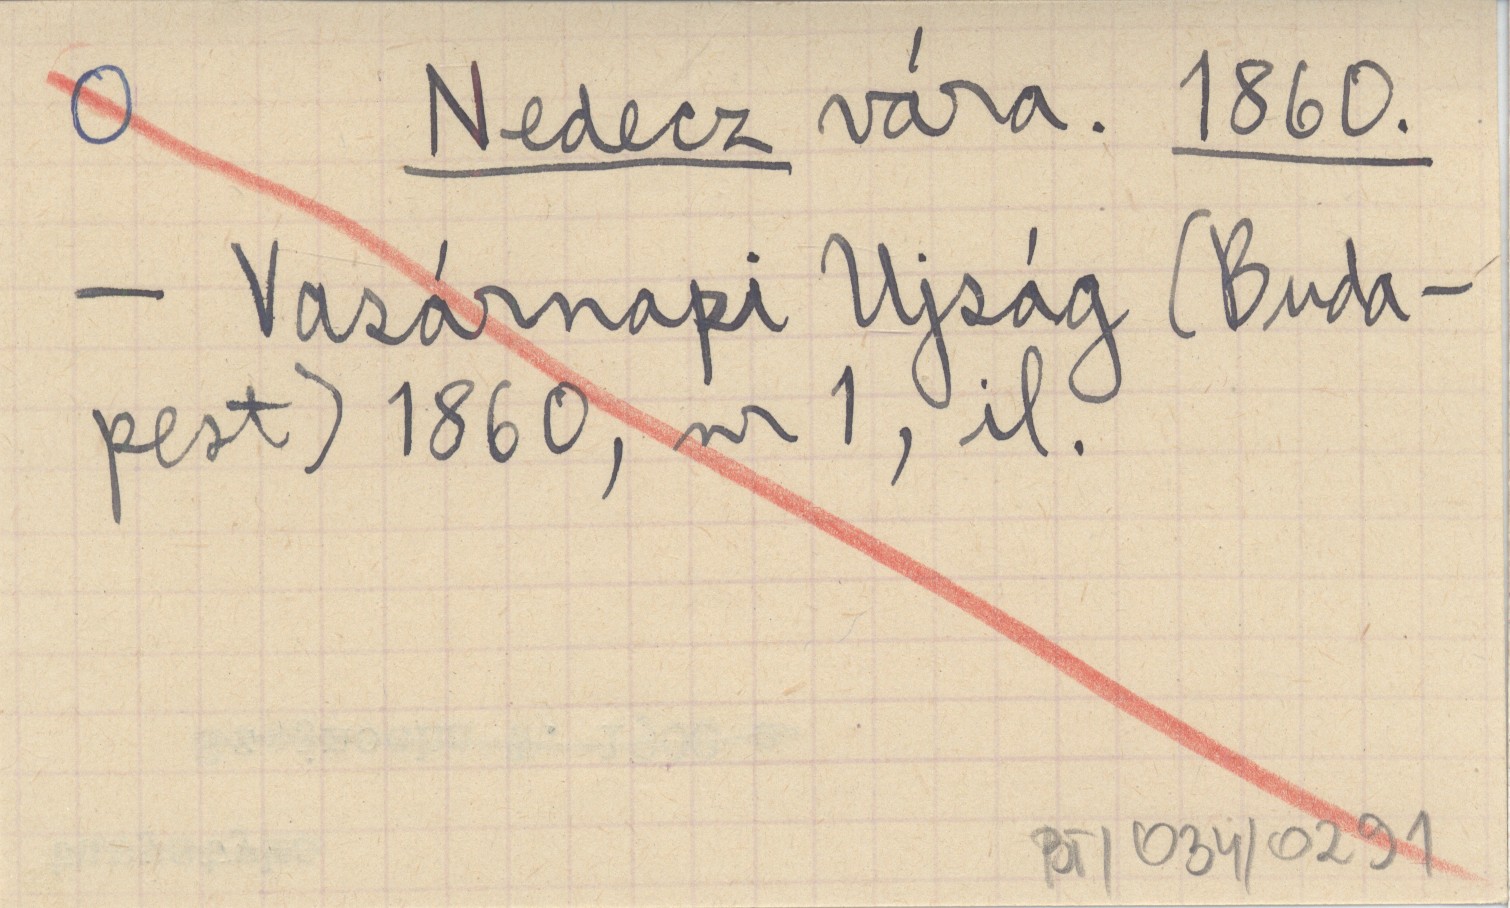 O Nedecz vára. 1860.
— Vasárnapi Ujság (Buda-
pest) 1860, nr 1, il.
BT/034/0291